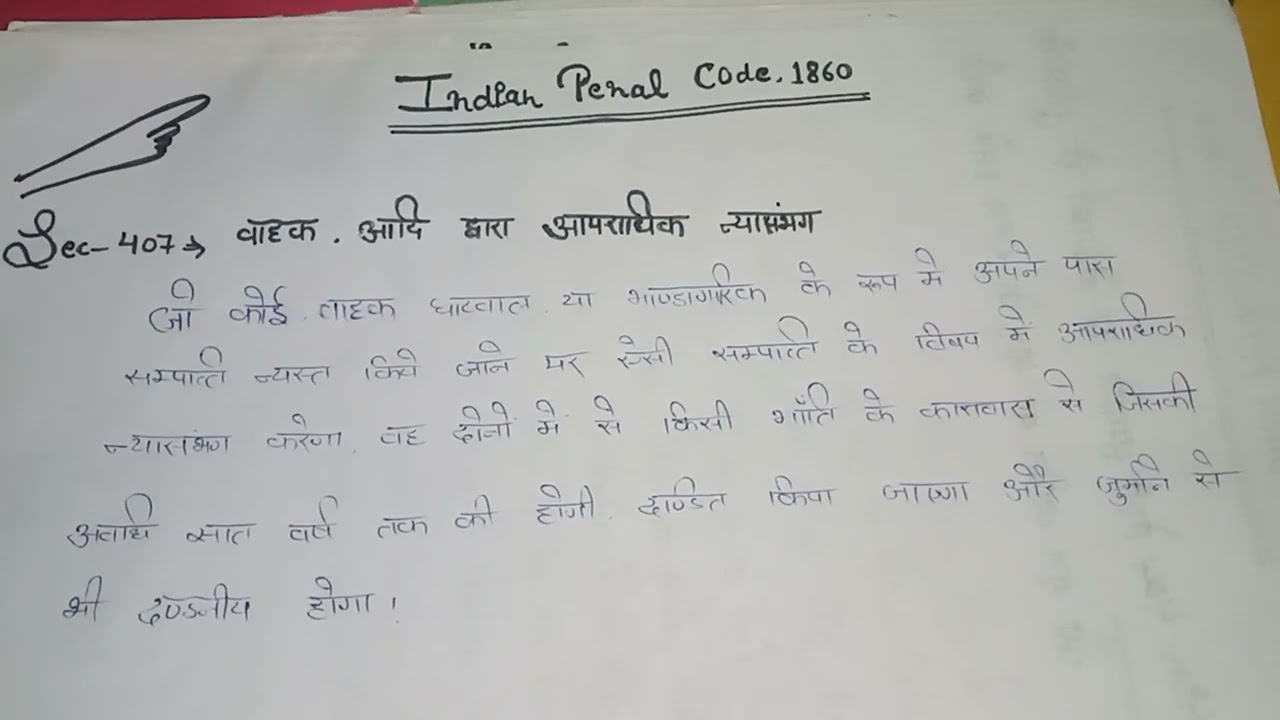 Indian Penal Code. 1860
Sec-407→ वाहक. आदि द्वारा आपराधिक न्यासभंग
जो कोई. वाहक घाटवाल. या भाण्डागारिक के रूप मे अपने पास
सम्पात्ति न्यस्त किये जाने पर ऐसी सम्पात्ति के विषय मे आपराधिक
न्यासभंग करेगा. वह दोनों मे से किसी भाँति के कारावास से जिसकी
अवधि सात वर्ष तक की होगी. दण्डित किया जाएगा और जुर्माने से
भी दण्डनीय होगा।